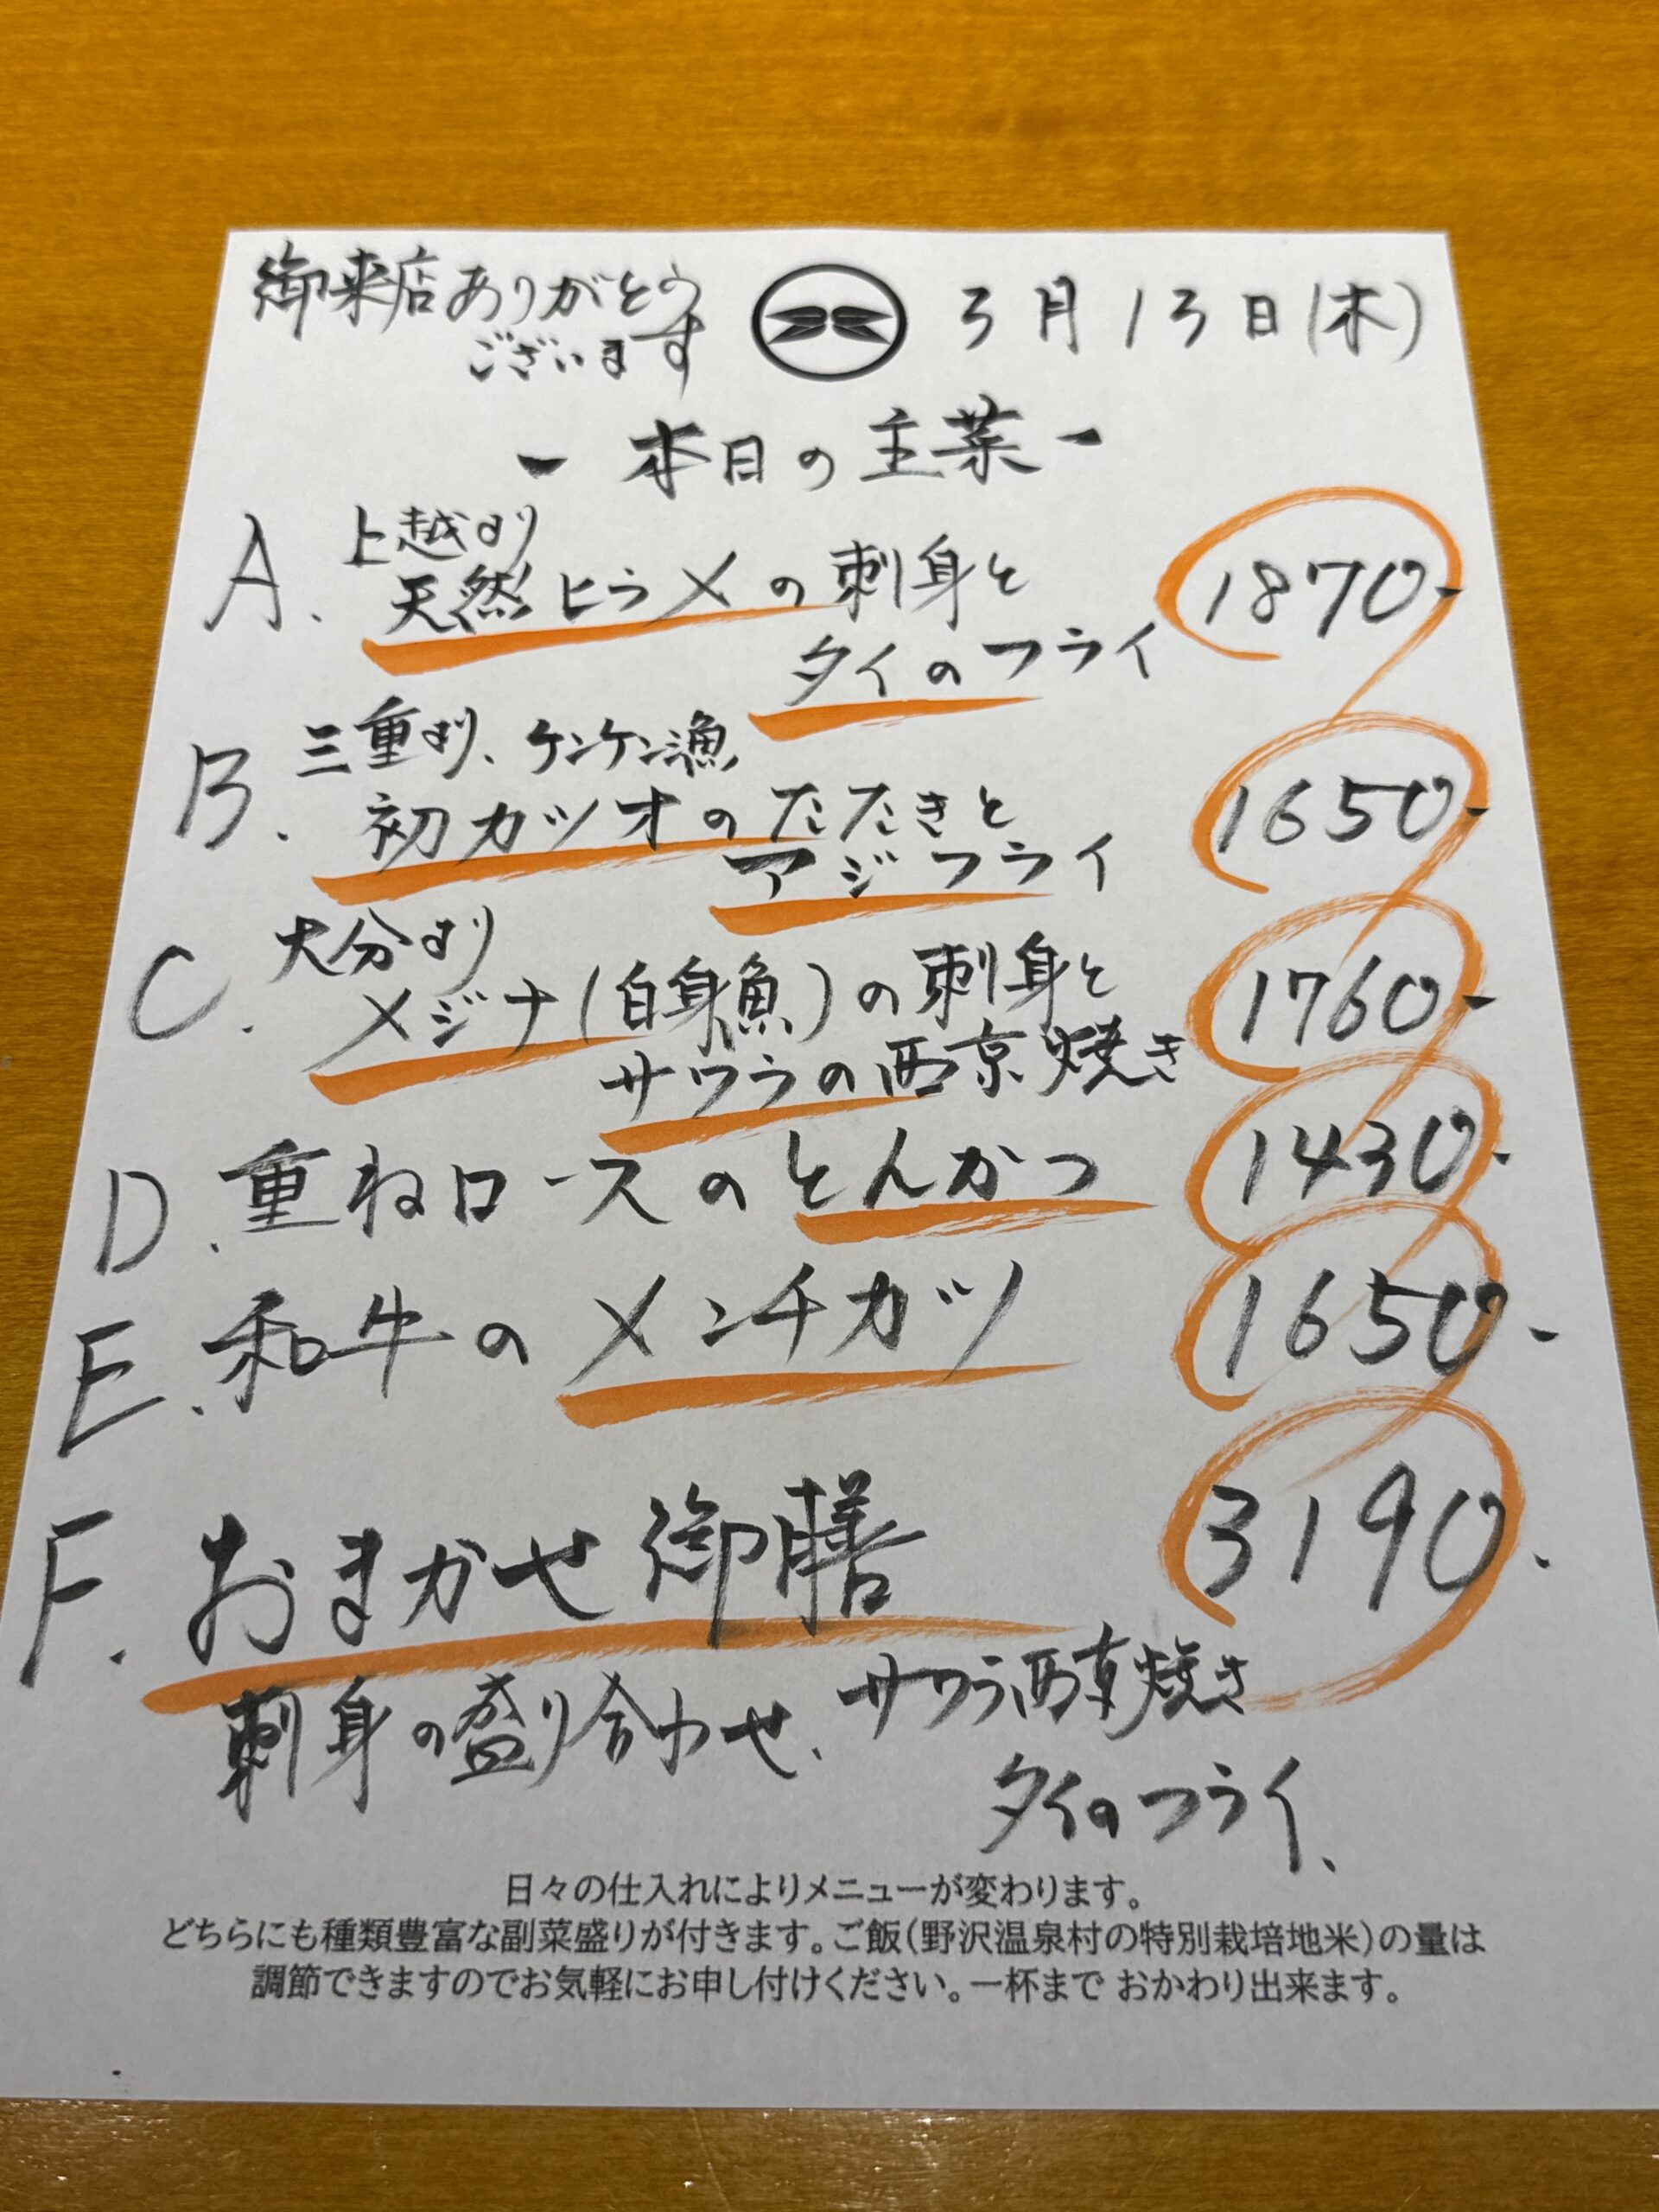 御来店ありがとう
ございます
3月13日(木)
- 本日の主菜 -
A. 上越より
天然ヒラメの刺身と
タイのフライ
1870-
B. 三重より、ケンケン漁
初カツオのたたきと
アジフライ
1650-
C. 大分より
メジナ(白身魚)の刺身と
サワラの西京焼き
1760-
D. 重ねロースのとんかつ
1430-
E. 和牛のメンチカツ
1650-
F. おまかせ御膳
3190-
刺身の盛り合わせ、サワラ西京焼き
タイのフライ、
日々の仕入れによりメニューが変わります。
どちらにも種類豊富な副菜盛りが付きます。ご飯(野沢温泉村の特別栽培地米)の量は
調節できますのでお気軽にお申し付けください。一杯まで おかわり出来ます。